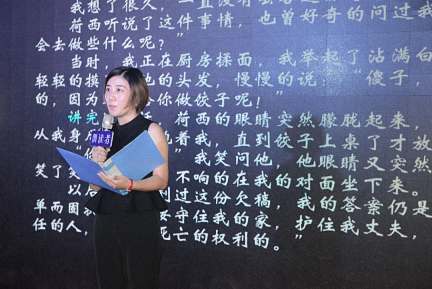 我想了很久，一直没有
荷西听说了这件事情，也曾好奇的问过我
会去做些什么呢？
当时，我正在厨房揉面，我举起了沾满白
轻轻的摸 他的头发，慢慢的说："傻子，
的，因为 你做饺子呢！
讲完 荷西的眼睛突然朦胧起来，
从我身 着我，直到饺子上桌了才放
笑了 我笑问他，他眼睛又突然
不响的在我的对面坐下来。
以 过这份欠稿，我的答案仍是
单而固 守住我的家，护住我丈夫，
任的人， 死亡的权利的。"
朗读者